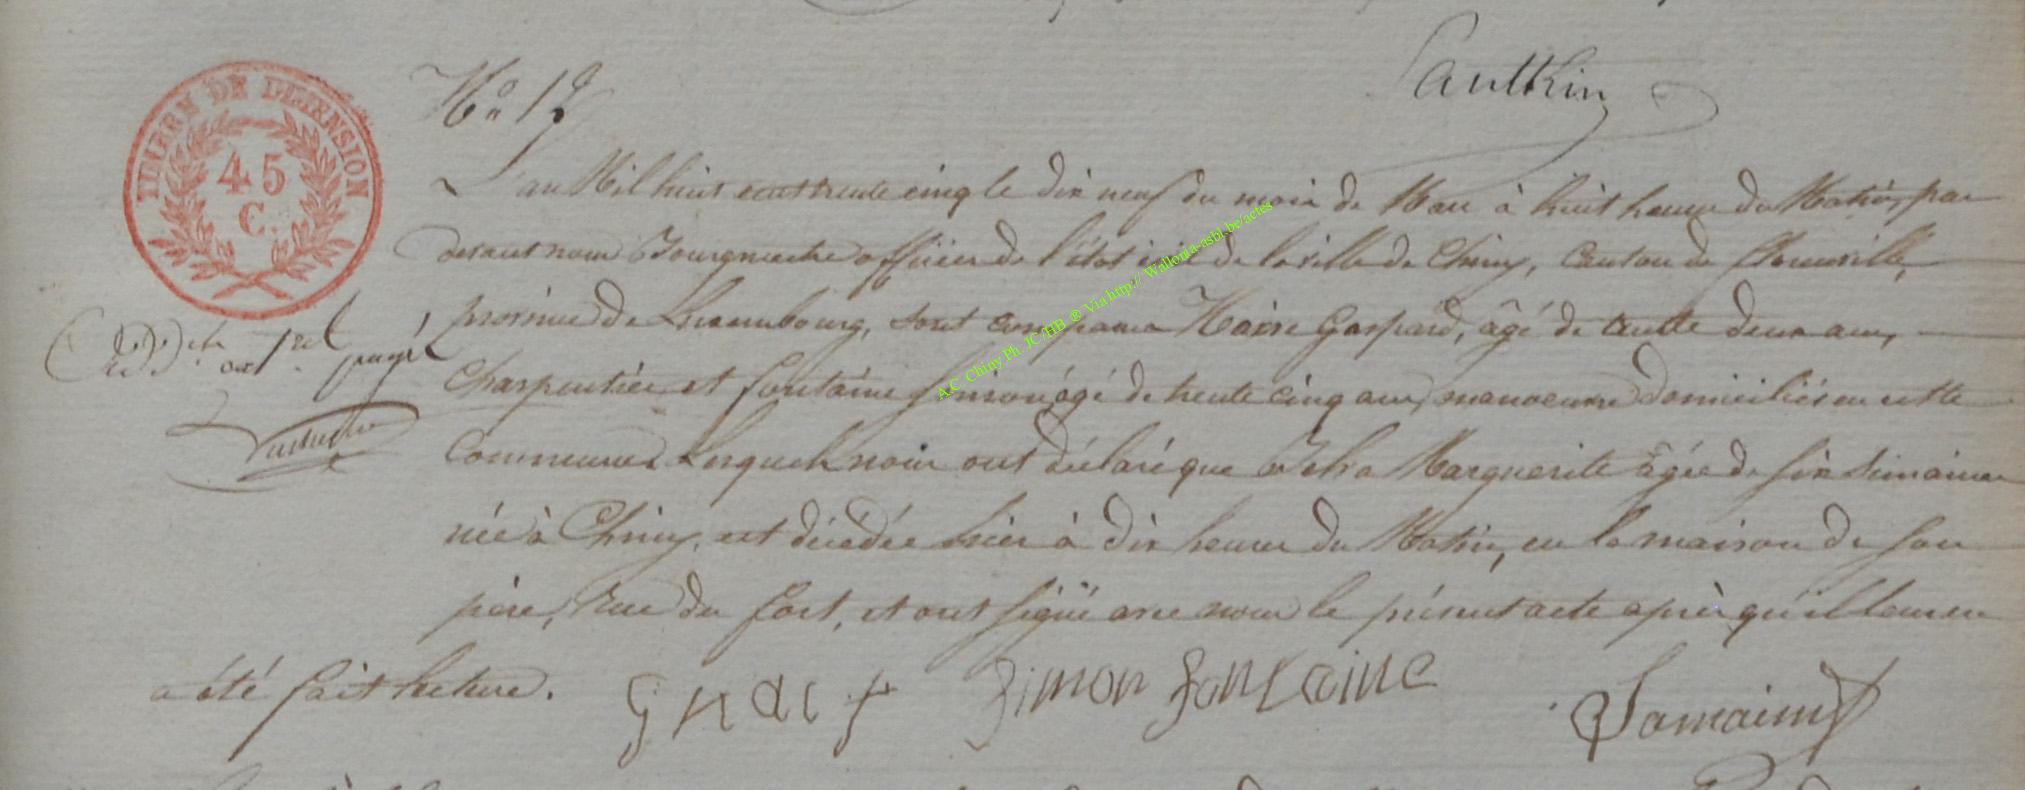 Sautkin
No 17
TIMBRE DE DIMENSION
45
C.
L'an Mil huit cent trente cinq le dix neuf du mois de Mars à huit heures du Matin, par
devant nous Bourgmestre officier de l'état civil de la ville de Chiny, Canton de Florenville,
province de Luxembourg, sont comparus Naire Gaspard, âgé de trente deux ans,
Charpentier et fontaine Simon âgé de trente cinq ans, manoeuvre domiciliés en cette
Commune Lesquels nous ont déclaré que Marguerite âgée de six semaines
née à Chiny, est décédée hier à dix heures du Matin, en la maison de son
père, Rue du fort, et ont signé avec nous le présent acte après qu'il leur en
a été fait lecture.
G N
Simon fontaine
A.C. Chiny Ph. JC/HB ® Via http:// Wallonia-asbl.be/actes